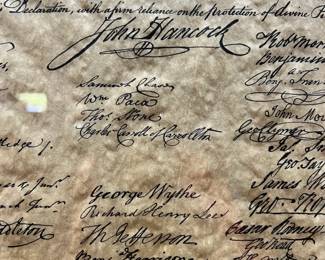 Declaration, with a firm reliance on the Protection of divine
John Hancock
Robt Mor
Benjamin
Samuel Chase
Wm Paca
Thos Stone
Charles Carroll of Carrollton
Benj. Fran
John Mor
Geo Clymer
Jas. Sm
Geo. Tay
James W
Geo. Ross
George Wythe
Richard Henry Lee
Th Jefferson
Benj Harrison
Caesar Rodney
Geo Read